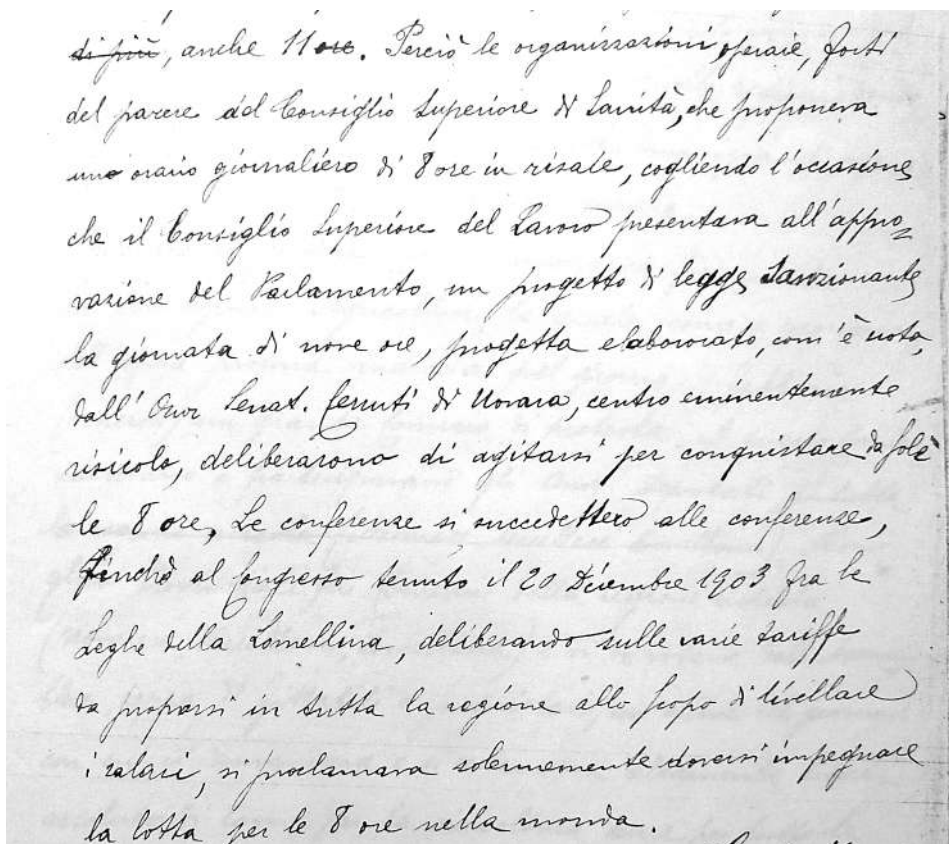 di più, anche 11 ore. Perciò le organizzazioni operaie, forti
del parere del Consiglio Superiore di Sanità, che proponeva
uno orario giornaliero di 8 ore in risaie, cogliendo l'occasione
che il Consiglio Superiore del Lavoro presentava all'appro=
vazione del Parlamento, un progetto di legge sanzionante
la giornata di nove ore, progetto elaborato, com'è noto,
dall' Onor Senat. Cerruti di Novara, centro eminentemente
risicolo, deliberarono di agitarsi per conquistare da sole
le 8 ore. Le conferenze si succedettero alle conferenze,
finchè al Congresso tenuto il 20 Dicembre 1903 fra le
Leghe della Lomellina, deliberando sulle varie tariffe
da proporsi in tutta la regione allo scopo di livellare
i salari, si proclamava solennemente doversi impegnare
la lotta per le 8 ore nella monda.